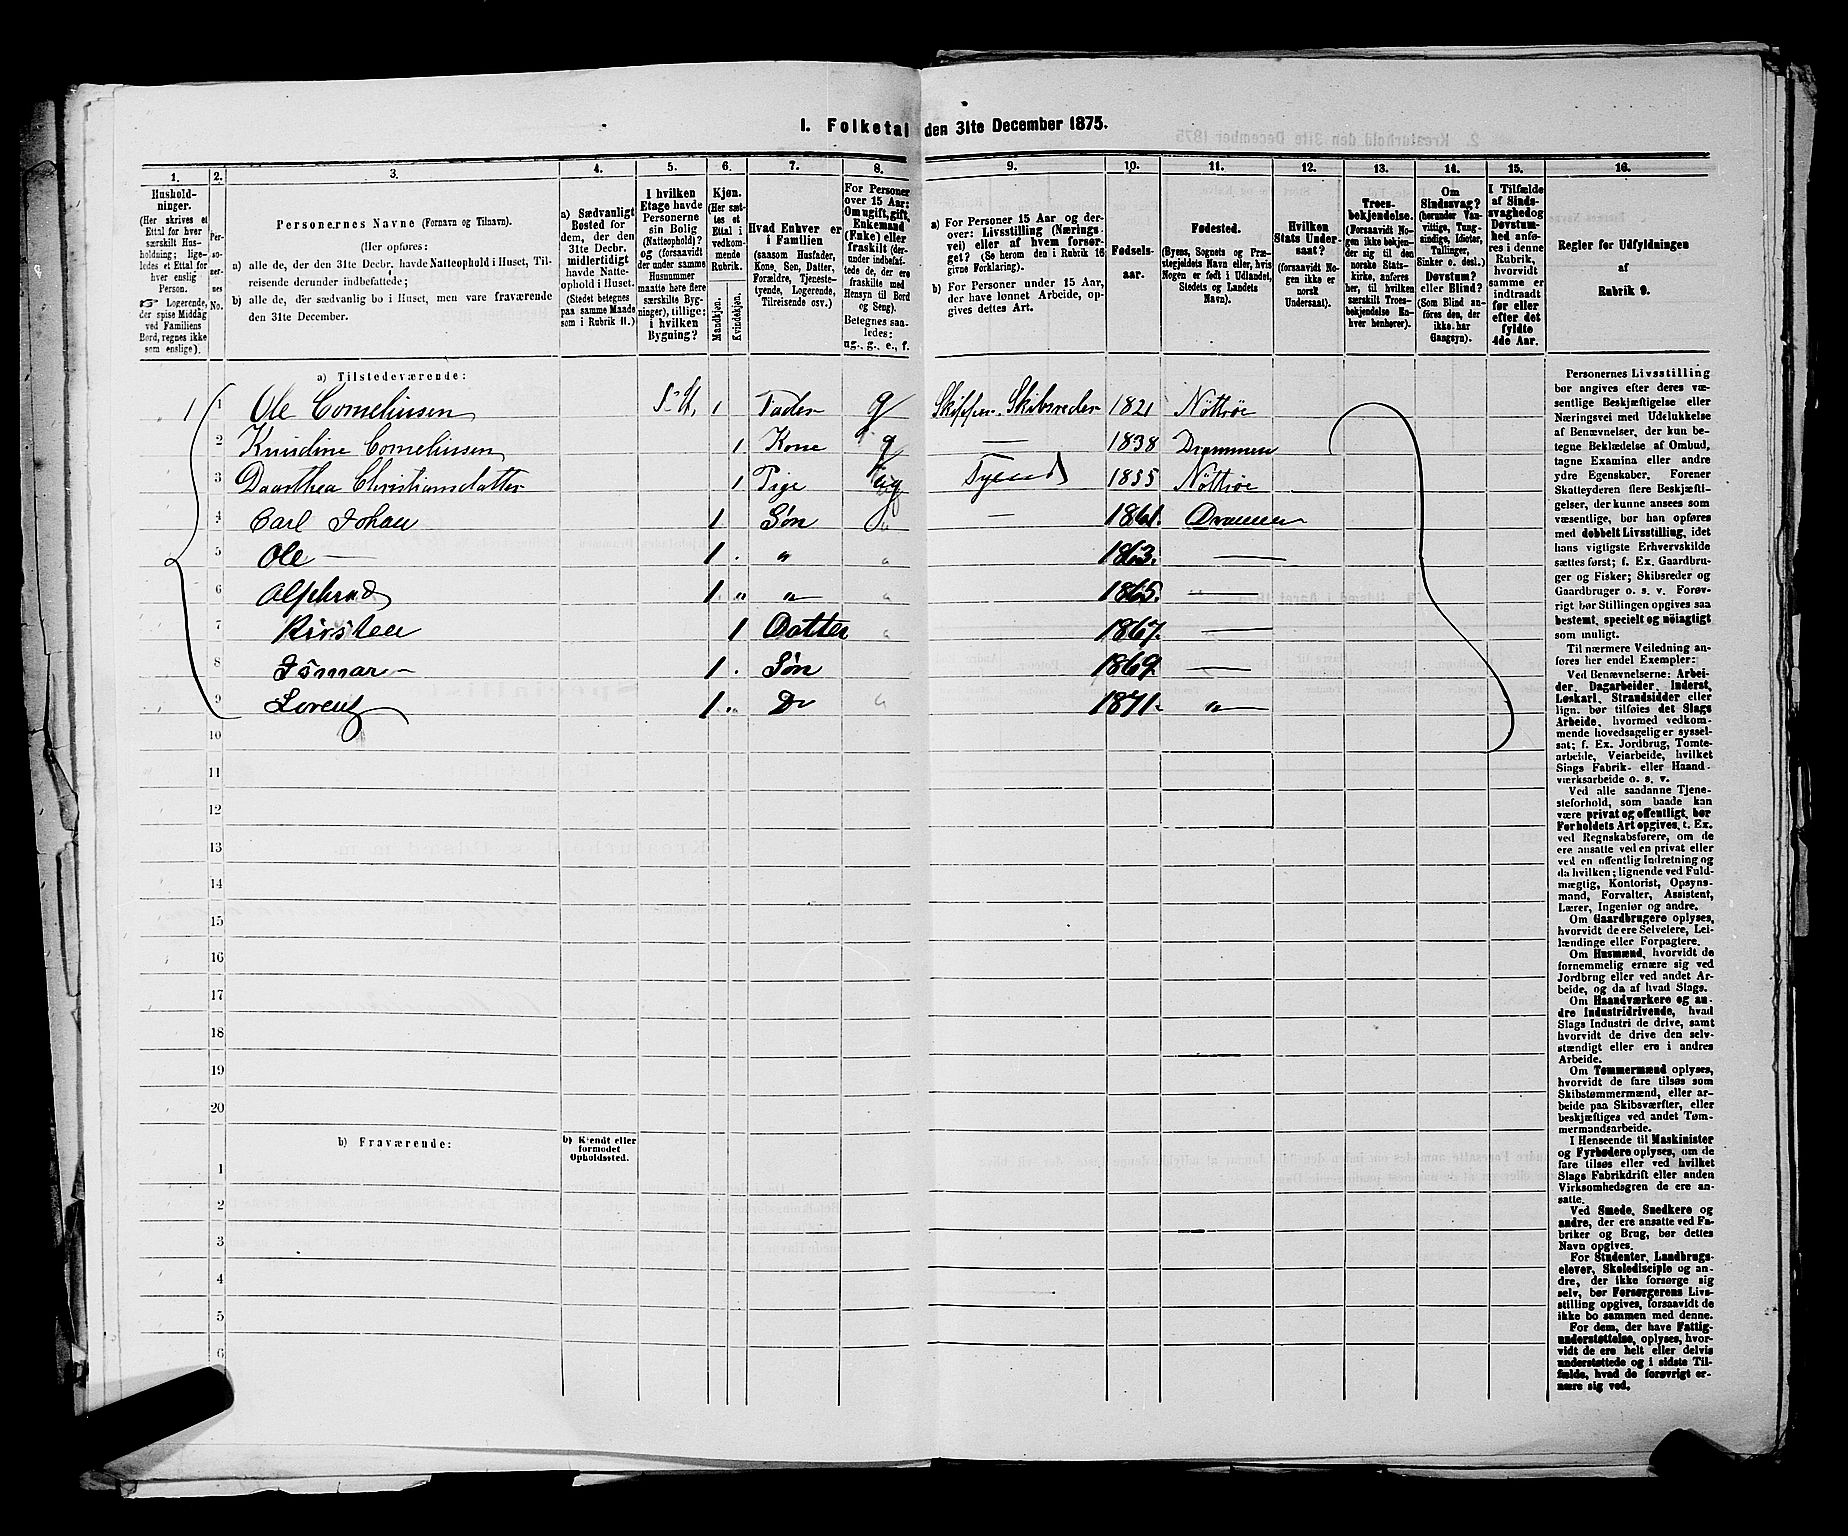 I. Folketal den 31te December 1875.
1. 2. 3. 4. 5. 6. 7. 8. 9. 10. 11. 12. 13. 14. 15. 16.
Hushold-
ninger.
(Her skrives et
Ettal for hver
særskilt Hus-
holdning; lige-
ledes et Ettal for
hver enslig
Person.
☞ Logerende,
der spise Middag
ved Familiens
Bord, regnes ikke
som enslige).
Per-
so-
ner-
nes
No.
Personernes Navne (Fornavn og Tilnavn).
(Her opføres:
a) alle de, der den 31te Decbr. havde Natteophold i Huset, Til-
reisende derunder indbefattede;
b) alle de, der sædvanlig bo i Huset, men vare fraværende
den 31te December.
a) Sædvanligt
Bosted for
dem, der den
31te Decbr.
midlertidigt
havde Natte-
ophold i Huset.
(Stedet betegnes
paa samme Maade
som i Rubrik 11.)
I hvilken
Etage havde
Personerne
sin Bolig
(Natteophold)?
og (forsaavidt
der under samme
Husnummer
maatte høre flere
særskilte Byg-
ninger), tillige:
i hvilken
Bygning?
Kjøn.
(Her sæt-
tes et
Ettal i
vedkom-
mende
Rubrik.
Mandkjøn.
Kvindekjøn.
Hvad Enhver er
i Familien
(saasom Husfader,
Kone, Søn, Datter,
Forældre, Tjeneste-
tyende, Logerende,
Tilreisende osv.)
For Personer
over 15 Aar:
Om ugift, gift,
Enkemand
(Enke) eller
fraskilt (der-
under indbefat-
tede de, der ere
fraskilte med
Hensyn til Bord
og Seng).
Betegnes saa-
ledes:
ug., g., e., f.
a) For Personer 15 Aar og der-
over: Livsstilling (Nærings-
vei) eller af hvem forsør-
get? (Se herom den i Rubrik 16
givne Forklaring).
b) For Personer under 15 Aar,
der have lønnet Arbeide, op-
gives dettes Art.
Fødsels-
aar.
Fødested.
(Byens, Sognets og Præ-
stegjeldets Navn eller, hvis
Nogen er født i Udlandet,
Stedets og Landets
Navn).
Hvilken
Stats Under-
saat?
(forsaavidt No-
gen ikke er
norsk
Undersaat).
Troes-
bekjendelse.
(Forsaavidt No-
gen ikke bekjen-
der sig til den
norske Stats-
kirke, anføres
her, til hvilken
særskilt Troes-
bekjendelse En-
hver henhører).
Om
Sindssvag?
(herunder Van-
vittige, Tung-
sindige, Idioter,
Tullinger,
Sinker o. desl.)
Døvstum?
eller Blind?
(Som Blind an-
føres den, der
ikke har
Gangsyn).
I Tilfælde
af Sinds-
svaghed og
Døvstum-
hed anfø-
res i denne
Rubrik,
hvorvidt
samme er
indtraadt
før eller
efter det
fyldte
4de Aar.
Regler for Udfyldningen
af
Rubrik 9.
a) Tilstedeværende:
1 1 Ole Corneliusen 1 Fader g Skipper Skibsreder 1821 Nöttröe
2 Knudine Corneliusen 1 Kone g — 1838 Drammen
3 Daarthea Christiansdatter 1 Pige ug Tyende 1855 Nöttröe
4 Carl Johan 1 Søn — 1861. Drammen
5 Ole — 1 " 1863. —
6 Alphred 1 " 1865. —
7 Kirsten 1 Datter 1867. —
8 Ismar — 1 Søn 1869. —
9 Lorentz 1 Do 1871. "
10
11
12
13
14
15
16
17
18
19
20
b) Fraværende:
b) Kjendt eller
formodet
Opholdssted.
1
2
3
4
5
6
Personernes Livsstilling
bør angives efter deres væ-
sentlige Beskjæftigelse eller
Næringsvei med Udelukkelse
af Benævnelser, der kun be-
tegne Beklædelse af Ombud,
tagne Examina eller andre
ydre Egenskaber. Forener
Skatteyderen flere Beskjæfti-
gelser, der kunne ansees som
væsentlige, bør han opføres
med dobbelt Livsstilling, idet
hans vigtigste Erhvervskilde
sættes først; f. Ex. Gaardbru-
ger og Fisker; Skibsreder og
Gaardbruger o. s. v. Forøv-
rigt bør Stillingen opgives saa
bestemt, specielt og nøiagtigt
som muligt.
Til nærmere Veiledning an-
føres her endel Exempler:
Ved Benævnelserne: Arbei-
der, Dagarbeider, Inderst,
Løskarl, Strandsidder eller
lign. bør tilføies det Slags
Arbeide, hvormed vedkom-
mende hovedsagelig er syssel-
sat; f. Ex. Jordbrug, Tomte-
arbeide, Veiarbeide, hvilket
Slags Fabrik- eller Haand-
værksarbeide o. s. v.
Ved alle saadanne Tjene-
steforhold, som baade kan
være privat og offentligt, bør
Forholdets Art opgives, t. Ex.
ved Regnskabsførere, om de
ere ansatte ved en privat eller
ved en offentlig Indretning og
da hvilken; lignende ved Fuld-
mægtig, Kontorist, Opsyns-
mand, Forvalter, Assistent,
Lærer, Ingeniør og andre.
Om Gaardbrugere oplyses,
hvorvidt de ere Selveiere, Lei-
lændinge eller Forpagtere.
Om Husmænd, hvorvidt de
fornemmelig ernære sig ved
Jordbrug eller ved andet Ar-
beide, og da af hvad Slags.
Om Haandværkere og an-
dre Industridrivende, hvad
Slags Industri de drive, samt
hvorvidt de drive den selv-
stændigt eller ere i andres
Arbeide.
Om Tømmermænd oplyses,
hvorvidt de fare tilsøs som
Skibstømmermænd, eller ar-
beide paa Skibsværfter, eller
beskjæftiges ved andet Tøm-
mermandsarbeide.
I Henseende til Maskinister
og Fyrbødere oplyses, om de
fare tilsøs eller ved hvilket
Slags Fabrikdrift eller anden
Virksomhedsgren de ere an-
satte.
Ved Smede, Snedkere og
andre, der ere ansatte ved Fa-
briker og Brug, bør dettes
Navn opgives.
For Studenter, Landbrugs-
elever, Skoledisciple og an-
dre, der ikke forsørge sig
selv, bør Forsørgerens Livs-
stilling opgives, forsaavidt de
ikke bo sammen med denne.
For dem, der have Fattig-
understøttelse, oplyses, hvor-
vidt de ere helt eller delvis
understøttede og i sidste Til-
fælde, hvad de forøvrigt er-
nære sig ved.